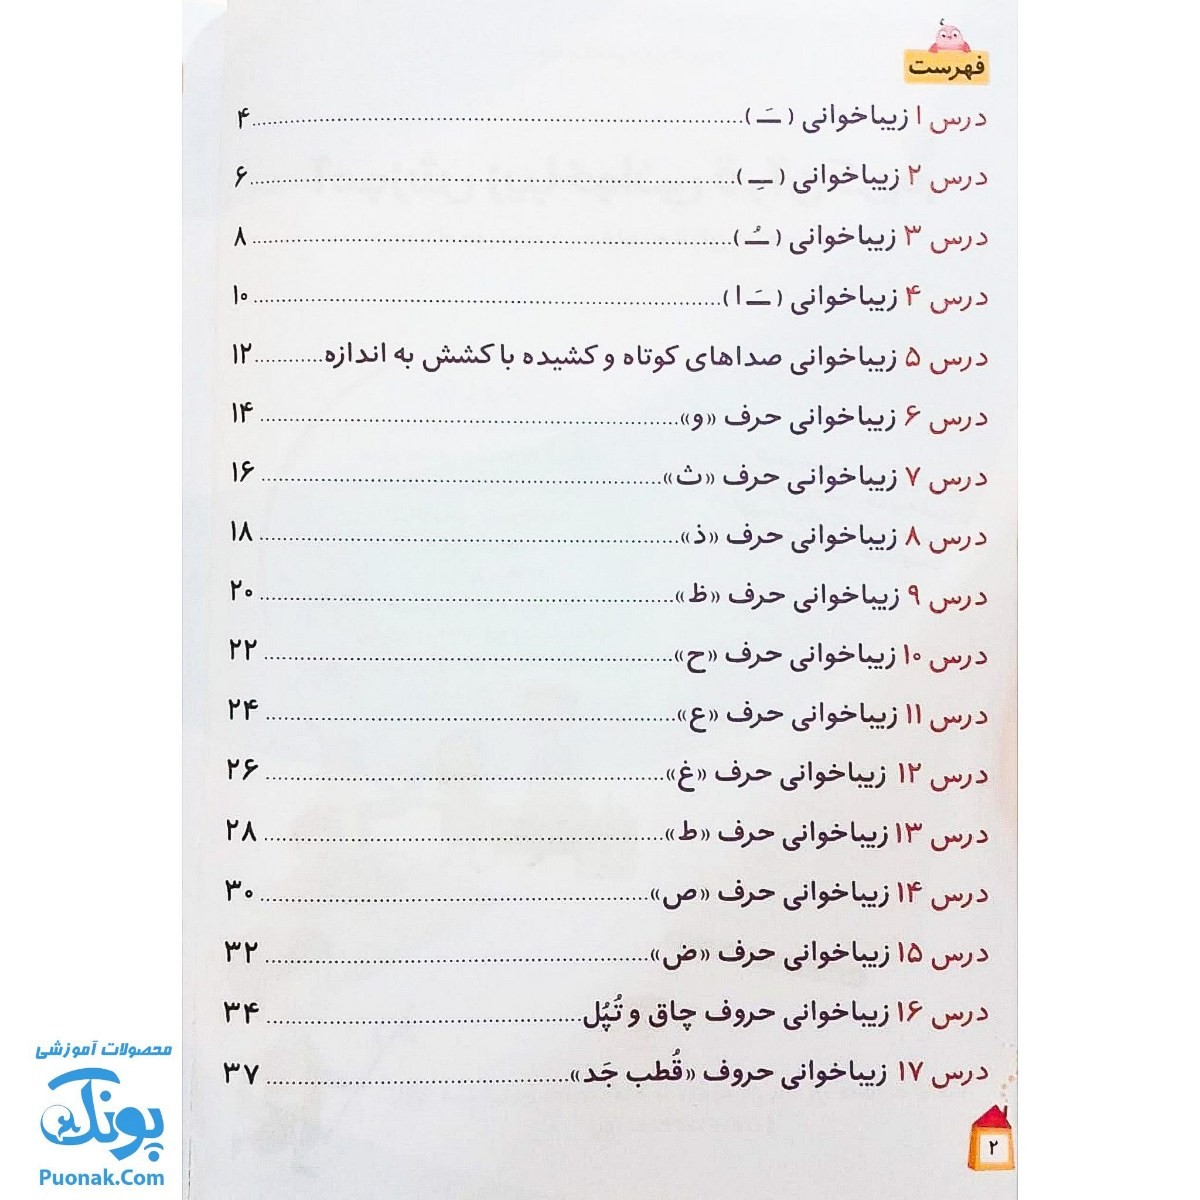 فهرست
درس ۱ زیباخوانی ( ــَـ )................ ۴
درس ۲ زیباخوانی ( ــِـ )................ ۶
درس ۳ زیباخوانی ( ــُـ )................ ۸
درس ۴ زیباخوانی ( ــَـ ا )................ ۱۰
درس ۵ زیباخوانی صداهای کوتاه و کشیده با کشش به اندازه............ ۱۲
درس ۶ زیباخوانی حرف «و»................ ۱۴
درس ۷ زیباخوانی حرف «ث»................ ۱۶
درس ۸ زیباخوانی حرف «ذ»................ ۱۸
درس ۹ زیباخوانی حرف «ظ»................ ۲۰
درس ۱۰ زیباخوانی حرف «ح»................ ۲۲
درس ۱۱ زیباخوانی حرف «ع»................ ۲۴
درس ۱۲ زیباخوانی حرف «غ»................ ۲۶
درس ۱۳ زیباخوانی حرف «ط»................ ۲۸
درس ۱۴ زیباخوانی حرف «ص»................ ۳۰
درس ۱۵ زیباخوانی حرف «ض»................ ۳۲
درس ۱۶ زیباخوانی حروف چاق و تُپُل................ ۳۴
درس ۱۷ زیباخوانی حروف «قُطب جَد»................ ۳۷
۲
محصولات آموزشی
پونک
Puonak.Com